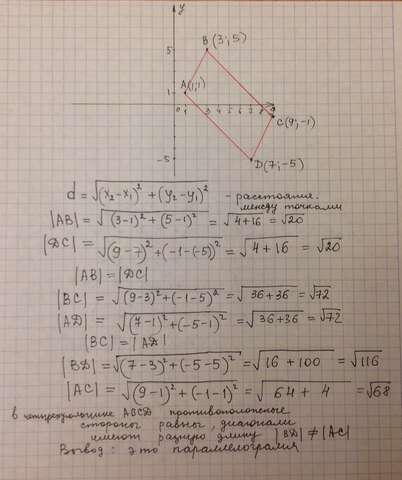 y
B (3; 5)
5
A(1;1)
0 1 3 5 6 7 8 9
C(9;-1)
-5
D(7;-5)
d = √((x₂-x₁)² + (y₂-y₁)²) - расстояния.
между точками
|AB| = √((3-1)² + (5-1)²) = √(4+16) = √20
|DC| = √((9-7)² + (-1-(-5))²) = √(4+16) = √20
|AB| = |DC|
|BC| = √((9-3)² + (-1-5)²) = √(36+36) = √72
|AD| = √((7-1)² + (-5-1)²) = √(36+36) = √72
|BC| = |AD|
|BD| = √((7-3)² + (-5-5)²) = √(16+100) = √116
|AC| = √((9-1)² + (-1-1)²) = √(64+4) = √68
в четырехугольнике ABCD противоположные
стороны равны, диагонали
имеют разную длину |BD| ≠ |AC|
Вывод: это параллелограмм